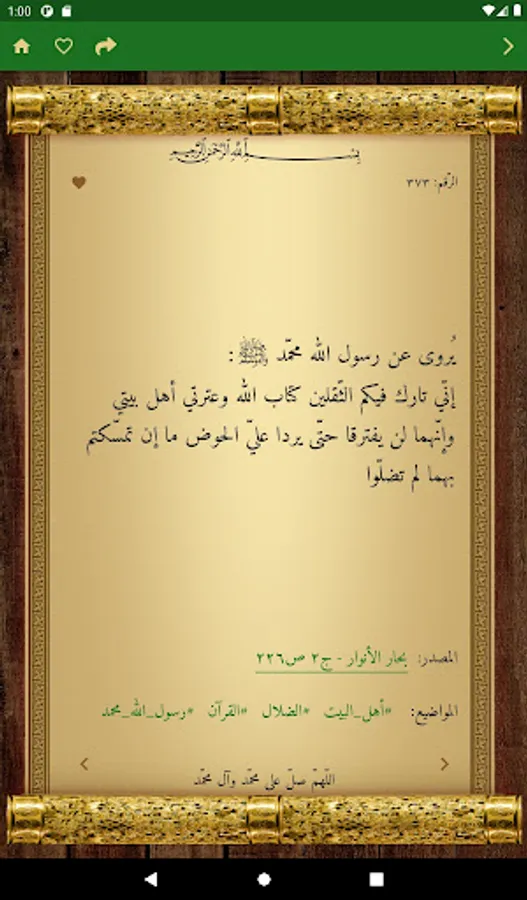 1:00
بِسْمِ اللهِ الرَّحْمٰنِ الرَّحِيمِ
الرّقم: ٣٧٣
يُروى عن رسول الله محمّد ﷺ :
إنّي تارك فيكم الثّقلين كتاب الله وعترتي أهل بيتي
وإنّهما لن يفترقا حتّى يردا عليّ الحوض ما إن تمسّكتم
بهما لم تضلّوا
المصدر: بحار الأنوار - ج٢ ص٢٢٦
المواضيع: #أهل_البيت #الضلال #القرآن #رسول_الله_محمد
اللّهمّ صلّ على محمّد وآل محمّد